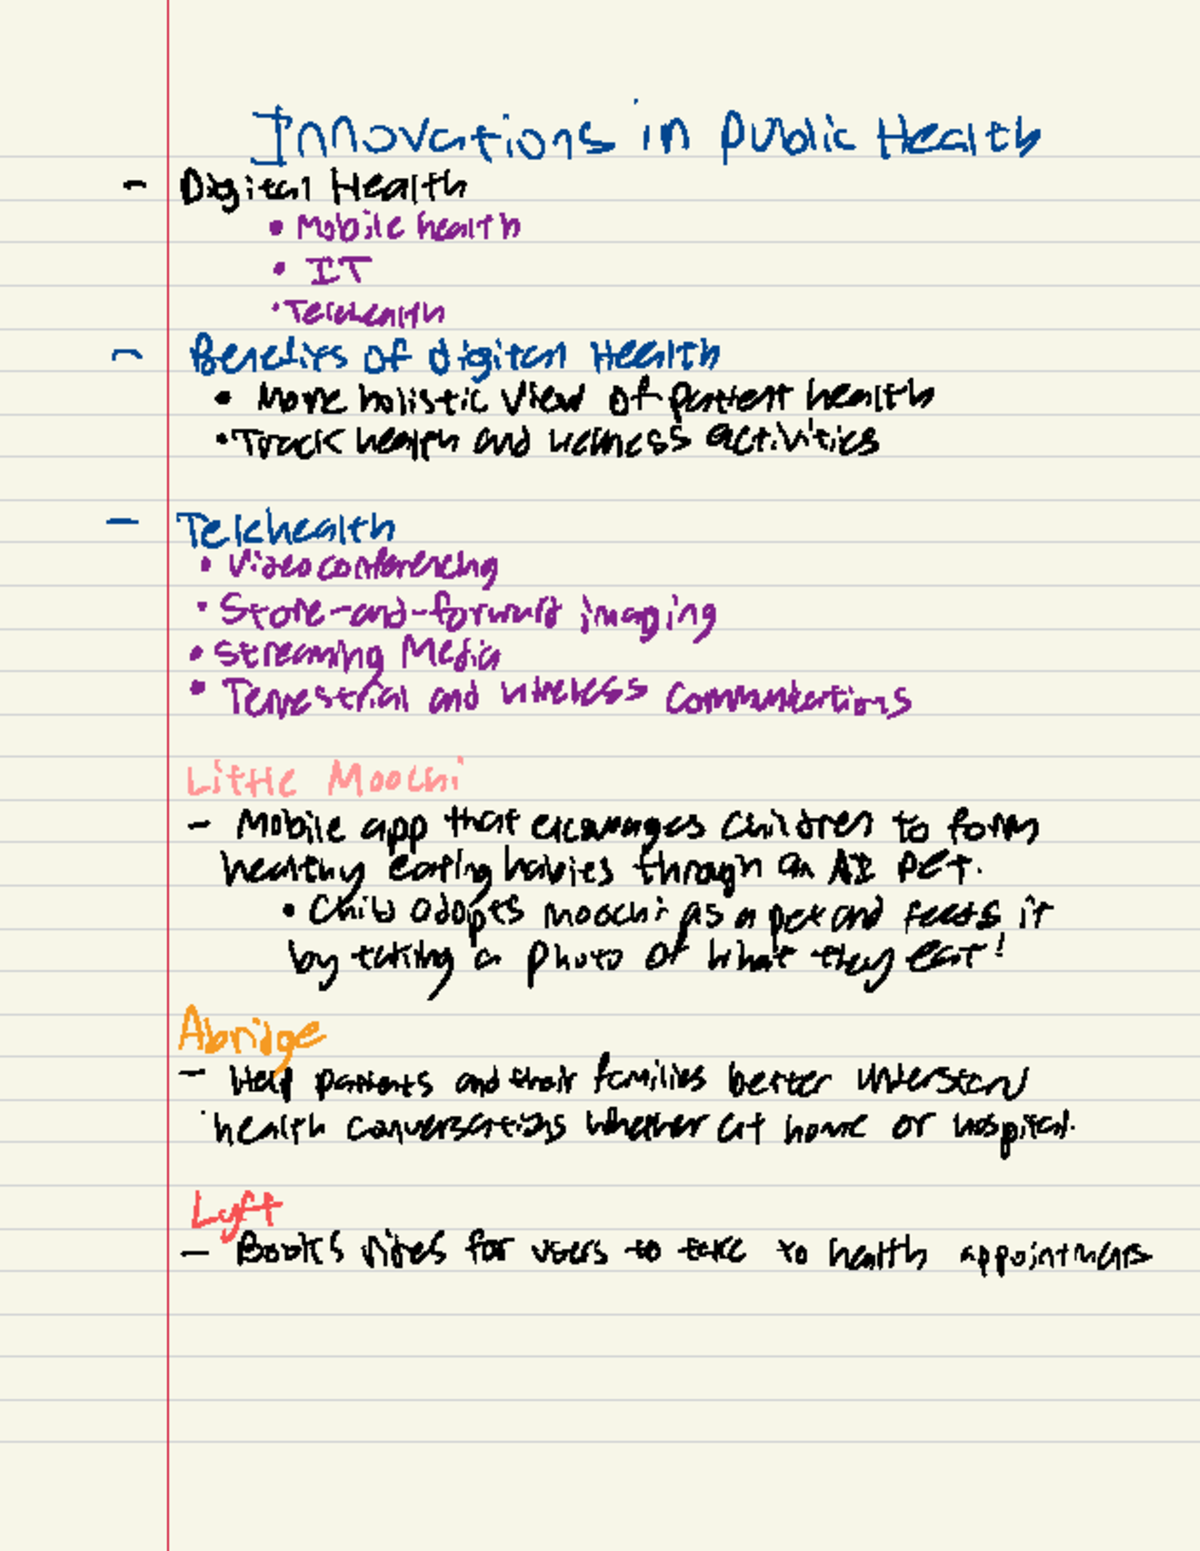 Innovations in Public Health
- Digital Health
• Mobile health
• IT
• Telehealth
- Benefits of digital Health
• More holistic view of patient health
• Track health and wellness activities
- Telehealth
• Videoconferencing
• Store-and-forward imaging
• Streaming Media
• Terrestrial and wireless communications
Little Moochi
- Mobile app that encourages children to form
healthy eating habits through an AI pet.
• Child adopts moochi as a pet and feeds it
by taking a photo of what they eat!
Abridge
- Help patients and their families better understand
health conversations whether at home or hospital.
Lyft
- Books rides for users to take to health appointments